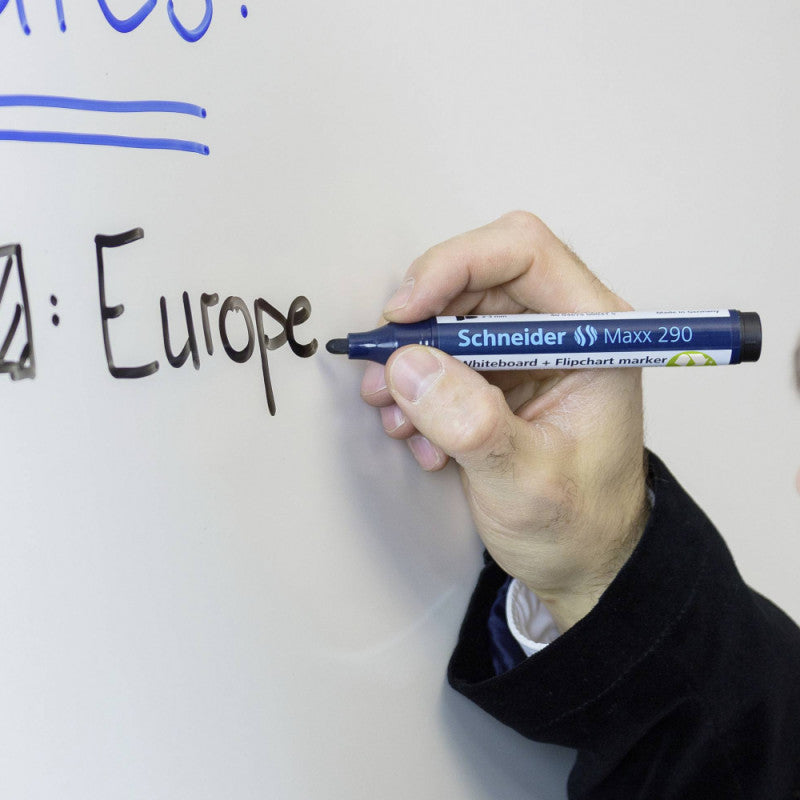 : Europe
Made in Germany
Schneider Maxx 290
Whiteboard + Flipchart marker